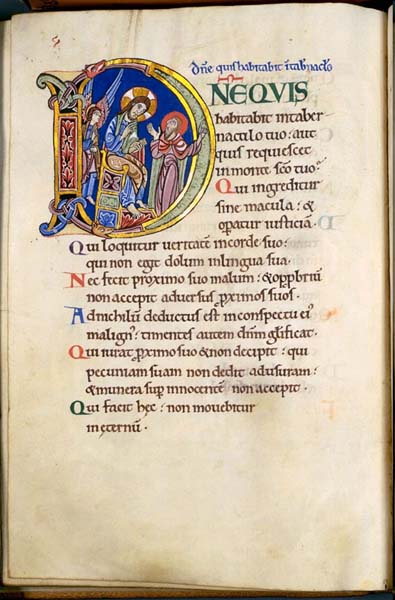 dn̄e quis habitabit ī tab̄naclo
DNE QVIS
habitabit intaber
naculo tuo: aut
quis requiescet
in monte sc̄o tuo?
Qui ingreditur
sine macula: &
opatur iusticiā.
Qui loquitur veritatē incorde suo:
qui non egit dolum inlingua sua.
Nec fecit proximo suo malum: & opp̄briū
non accepit adversus p̱ximos suos.
Ad nichilū deductus est inconspectu ei'
malign': timentes autem dn̄m gl̄ificat.
Qui iurat p̱ximo suo & non decipit: qui
pecuniam suam non dedit adusuram:
& munera sup̱ innocentē non accepit.
Qui facit hęc: non movebitur
inęternū.